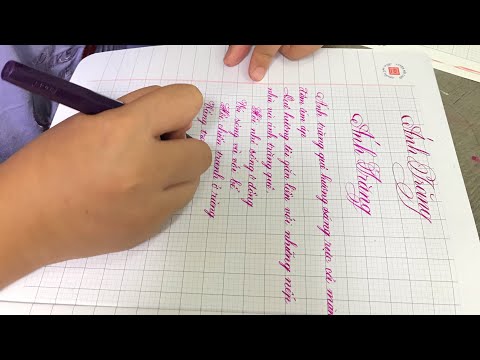 Ánh Trăng
Ánh Trăng
Ánh trăng quê hương sáng rực cả màn
đêm ấm áp
Quê hương tôi gắn liền với những nếp
nhà và ánh trăng quê.
Hồi nhỏ sống ở đồng
sông bể
Hồi chiến tranh ở rừng
Vầng